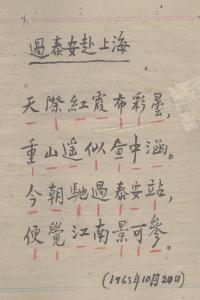 過泰安赴上海
天際紅霞布彩曇，
重山遥似画中涵。
今朝馳過泰安站，
便覺江南景可參。
(1963年10月20日)